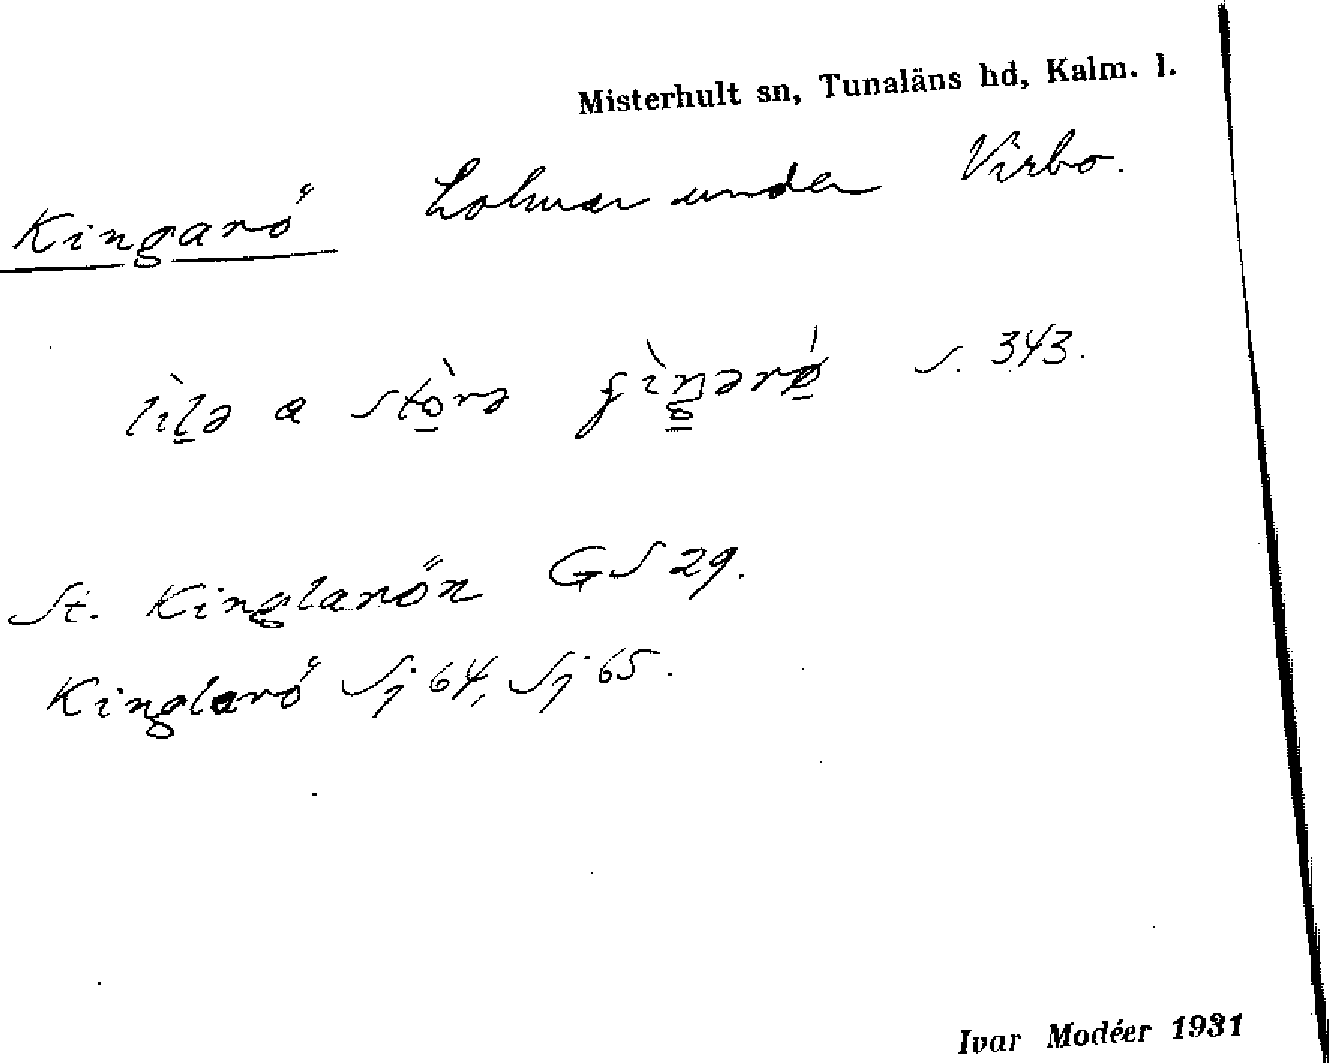 Misterhult sn, Tunaläns hd, Kalm. l.
Kingarö holmar under Virbo.
lìlə a stòrə s. 343.
St. Kinglarön GS 29.
Kinglarö Sj 64, Sj 65.
Ivar Modéer 1931